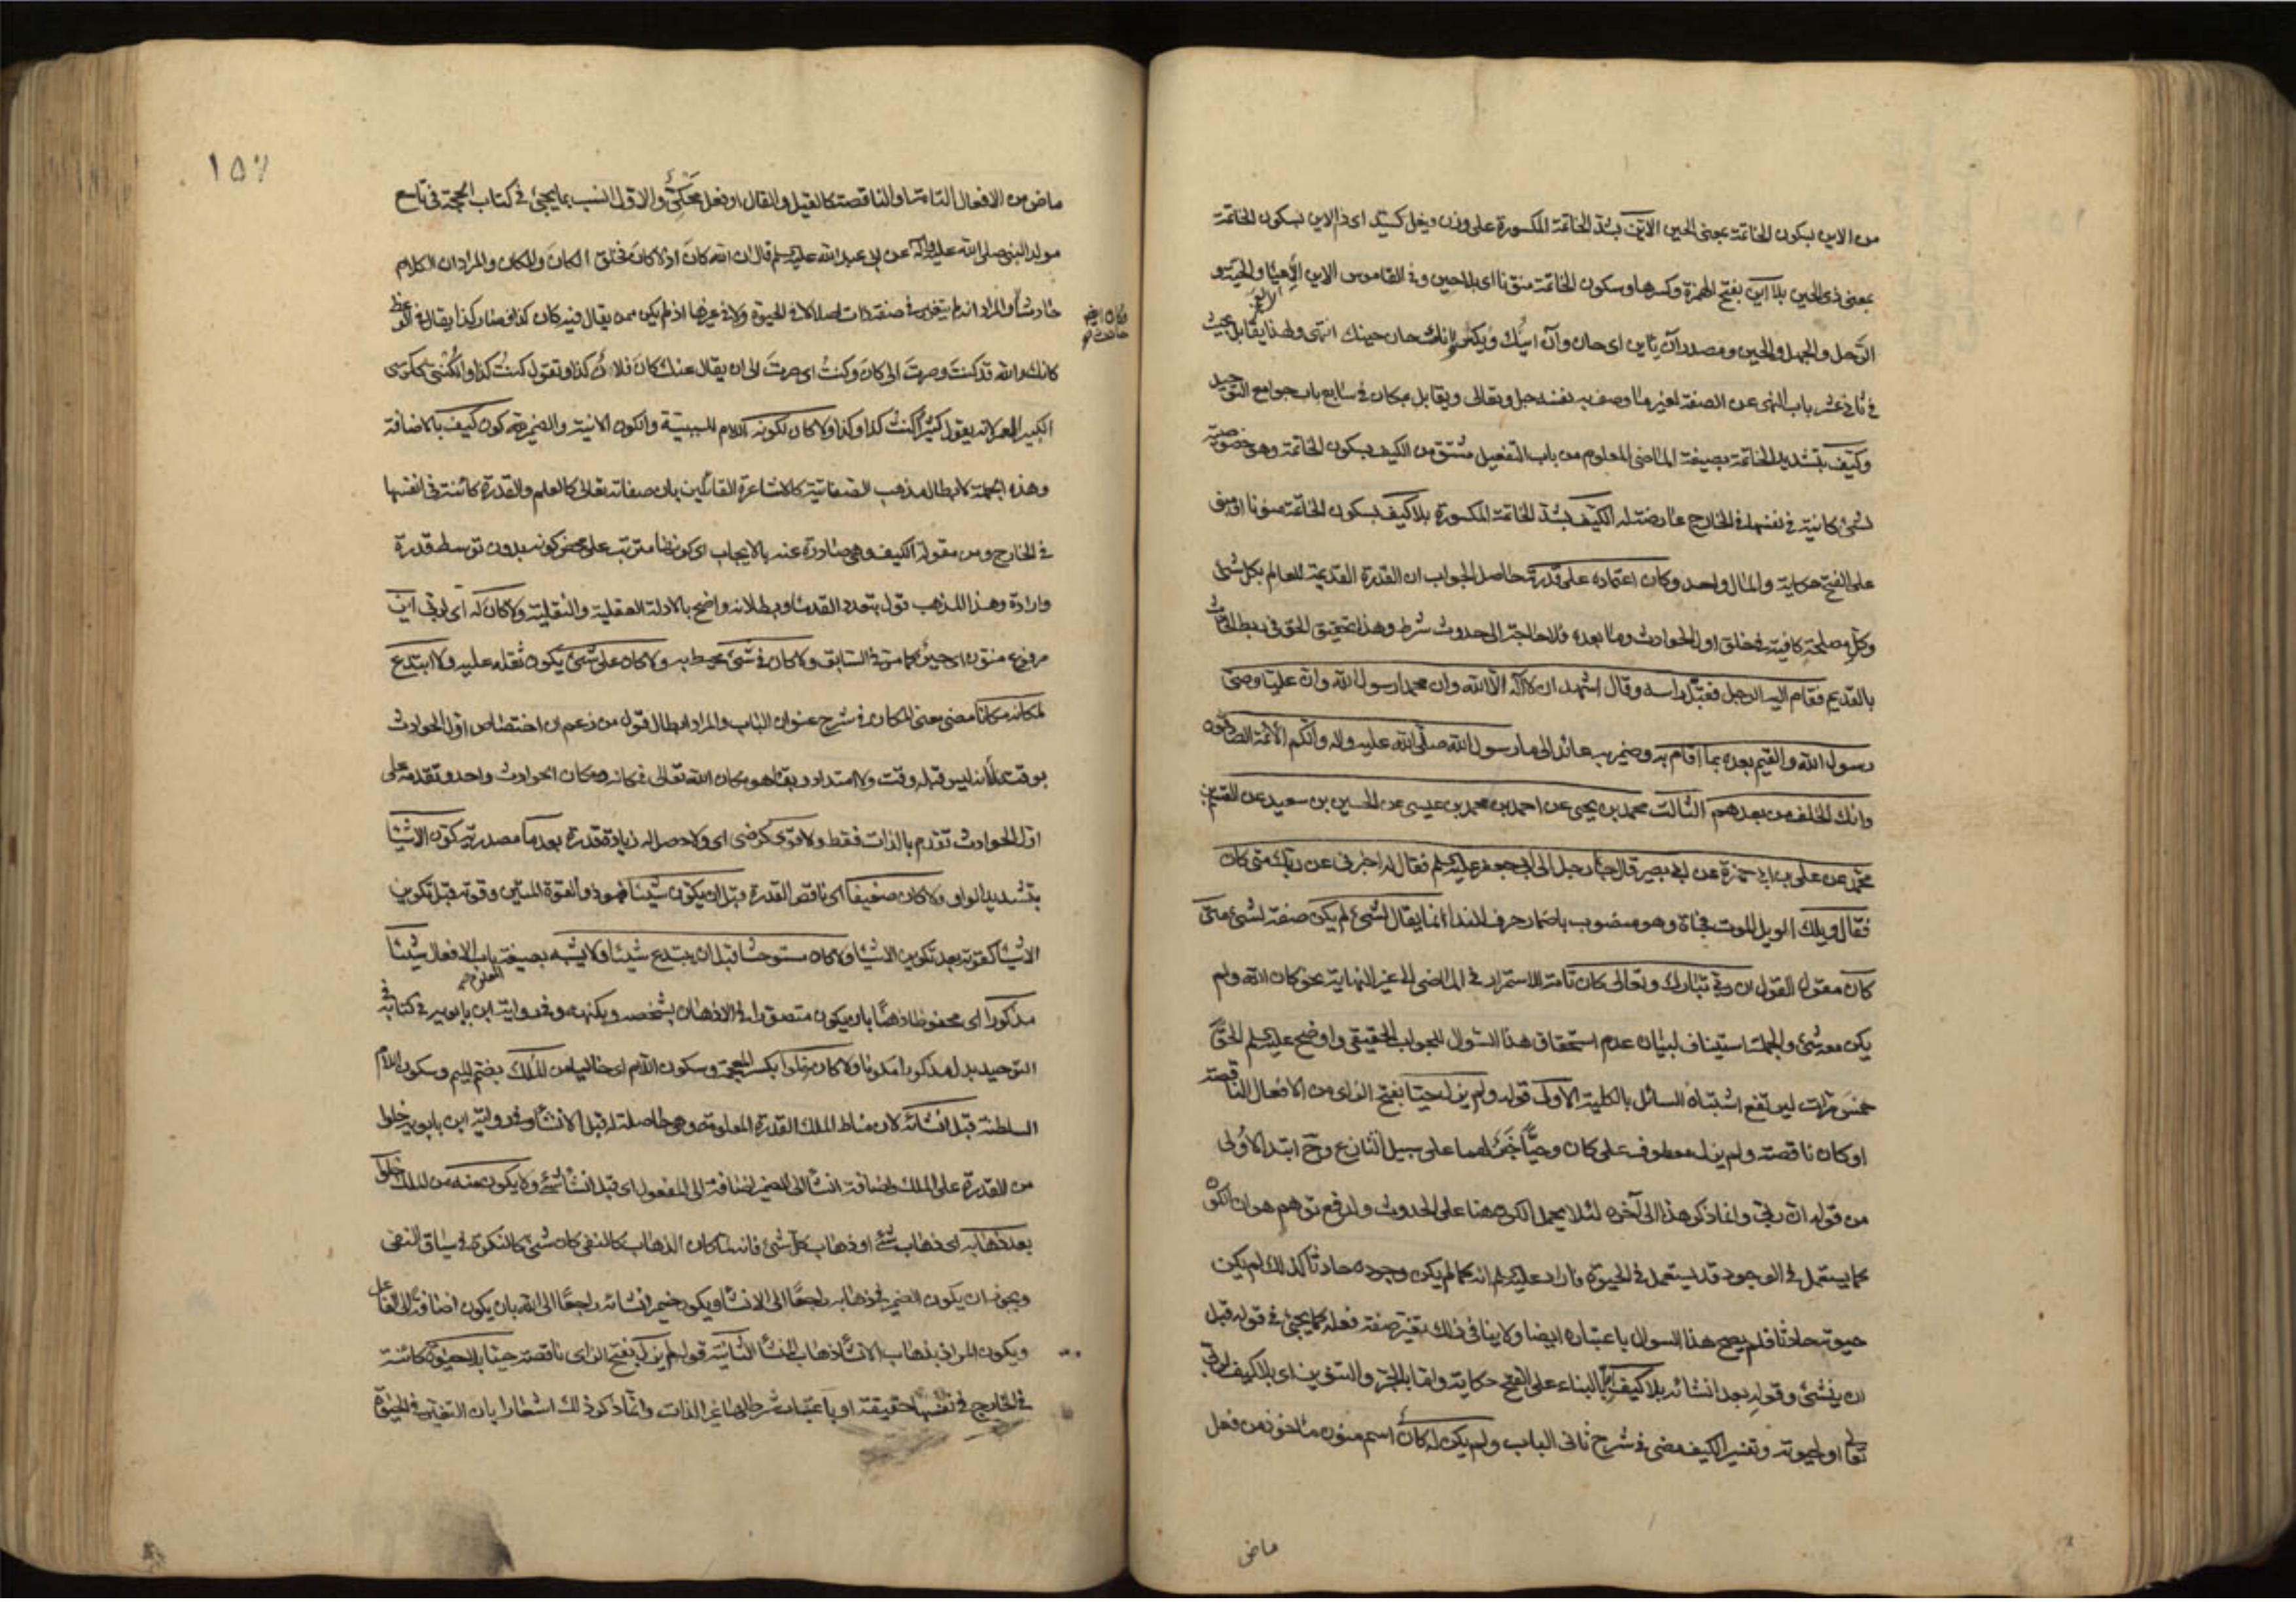 من الاين بسكون الخاتمة بمعنى الحين الاين بشد الخاتمة المكسورة على وزن فيعل كسيّد اى ذا الاين بسكون الخاتمة
بمعنى ذى الحين بلا اين بفتح الهمزة وكسرها وسكون الخاتمة منوّنا اى بلا حين وفى القاموس الاين الاعيا والحية و
الرّحل والجمل والحين ومصدر آن يأين اى حان وآن اينك ويكسر وانك حان حينك انتهى ولهذا يقابل بحيث
فى ثانى عشر باب النهى عن الصفة لغير ما وصف به نفسه جل وتعالى ويقابل بمكان فى سابع باب جوامع التوحيد
وكيّف بتشديد الخاتمة بصيغة الماضى المعلوم من باب التفعيل مشتق من الكيف بسكون الخاتمة وهو خصوصيّة
لشئ كائنة فى نفسها فى الخارج عارضة له الكيّف بشدّ الخاتمة المكسورة بلا كيف بسكون الخاتمة منونا او مبنى
على الفتح حكاية والمال واحد وكان اعتماده على قدرته حاصل الجواب ان القدرة القديمة للعالم بكل شئ
وكل مصلحة كافية فى خلق اول الحوادث وما بعده فلا حاجة الى حدوث شرط وهذا تحقيق الحق فى ربط الحادث
بالقديم فقام اليه الرجل فقبّل راسه وقال اشهد ان لا آله الّا الله وان محمدا رسول الله وان عليّا وصىّ
رسول الله والقيم بعده بما اقام به وضمير به عائد الى ما رسول الله صلّى الله عليه وآله وانكم الائمة الصادقون
وانك الخلف من بعدهم الثالث محمد بن يحيى عن احمد بن محمد بن عيسى عن الحسين بن سعيد عن القسم بن
محمد عن على بن ابى حمزة عن ابى بصير قال جاء رجل الى ابى جعفر عليه السلم فقال له اخبرنى عن ربك متى كان
فقال ويلك الويل الموت فجاة وهو منصوب باضمار حرف النداء انما يقال لشئ لم يكن صفة لشئ متى
كان مقول القول ان ربى تبارك وتعالى كان تامة الاستمرار فى الماضى الى غير النهاية نحو كان الله ولم
يكن معه شئ والجملة استيناف لبيان عدم استحقاق هذا السوال للجواب الحقيقى واوضح عليه السلم الحق
خمس مرات ليرتفع اشتباه السائل بالكلية الاولى قوله ولم يزل حيا بفتح الزاى من الافعال الناقصة
او كان ناقصة ولم يزل معطوف على كان وحيّا خبر لهما على سبيل التنازع وح ابتدا الاولى
من قوله ان ربى وانما ذكر هذا الى آخره لئلا يحمل الكون هنا على الحدوث ولدفع توهم هو ان الكون
كما يستعمل فى الوجود قد يستعمل فى الحيوة فاراد عليه السلم انه كما لم يكن وجوده حادثا كذلك لم يكن
حيوته حادثا فلم يصح هذا السوال باعتباره ايضا ولا ينافى ذلك تغير صفة فعله كما يجئ فى قوله قبل
ان ينشئ وقوله بعد انشائه بلا كيف بالبناء على الفتح حكاية ولقابل الجرّ والتنوين اى بلا كيف لربى
تعا او لحيوته وتفسير الكيف مضى فى شرح ثانى الباب ولم يكن له كان اسم منون ماخوذ من فعل
ماضى
١٥٧
ماض من الافعال التامة او الناقصة كالقيل والقال او فعل محكىّ والاول انسب بما يجئ فى كتاب الحجة فى تاسع
مولد النبى صلى الله عليه وآله عن ابى عبد الله عليه السلم قال ان الله كان اذ لا كان فخلق الكان والمكان والمراد ان الكلام
حادث والمراد انه لم يتغير فى صفة ذات اصلا لا فى الحيوة ولا فى غيرها اذ لم يكن ممن يقال فيه كان كذا فصار كذا يقال
كانك والله قد كنت وصرت الى كان وكنتُ اى صرت الى ان يقال عنك كان فلان كذا وتقول كنت كذا والكُنتىّ ككرسى
الكبير العمر لانه يقول كثيرا كنت كذا وكذا ولا كان لكونه اللام للسببية والكون الانية والضمير كون كيف بالاضافة
وهذه الجملة لابطال مذهب الصفاتية كالاشاعرة القائلين بان صفاته تعالى كالعلم والقدرة كائنة فى انفسها
فى الخارج ومن مقولة الكيف وهى صادرة عنه بالايجاب اى كونها مترتب على محض كونه بدون توسط قدرة
وارادة وهذا المذهب قول بتعدد القدماء وبطلانه واضح بالادلة العقلية والنقلية ولا كان له اى لربى اين
مرفوع منون اى حينٌ كما مر فى السابق ولا كان فى شئ محيط به ولا كان على شئ يكون ثقله عليه ولا ابتدع
لمكانه مكانا مضى معنى المكان فى شرح عنوان الباب والمراد ابطال قول من زعم ان اختصاص اول الحوادث
بوقت لانه ليس قبله وقت ولا امتداد بقاء هو مكان الله تعالى فمكانه ومكان الحوادث واحد وتقدمه على
اول الحوادث تقدم بالذات فقط ولا قوى كرضى اى ولا حصل له زيادة قدرة بعد ما مصدرية كوّن الاشيا
بتشديد الواو ولا كان ضعيفا اى ناقص القدرة قبل ان يكوّن شيئا فهو ذو القوة المتين وقوته قبل تكوين
الاشيا كقوته بعد تكوين الاشيا ولا كان مستوحشا قبل ان يبتدع شيئا ولا يشبه بصيغة باب الافعال شيئا
مذكورا اى محفوظا ذهنا بان يكون متصورا فى الاذهان بشخصه وبكنهه وفى رواية ابن بابويه فى كتابه فى
التوحيد بدل مذكورا مكونا ولا كان خلوا بكسر المعجمة وسكون اللام اى خاليا من الملك بضم الميم وسكون اللام
السلطنة قبل انشائه لان مناط الملك القدرة المعلومة وهى حاصلة له قبل الانشاء وفى رواية ابن بابويه خلوا
من القدرة على الملك واضافة انشاء الى الضمير اضافة الى المفعول اى قبل انشاء شئ ولا يكون منه من الملك خلوا
بعد ذهابه اى ذهاب شئ او ذهاب كل شئ فانه لما كان الذهاب كالنفى كان شئ كالنكرة فى سياق النفى
ويجوز ان يكون الضمير فى ذهابه راجعًا الى الانشاء ويكون ضمير انشائه راجعًا الى الله بان يكون اضافة الى الفاعل
ويكون المراد بذهاب الانشاء ذهاب المنشأ الثانية قوله لم يزل بفتح الزاى ناقصة حيّا بلا حيوة كائنة
فى الخارج فى نفسها حقيقة او باعتبار شرطها غير الذات وانما ذكر ذلك اشعارا بان التغير فى الحيوة